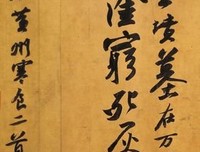 墳墓在万
塗窮死灰
黄州寒食二首